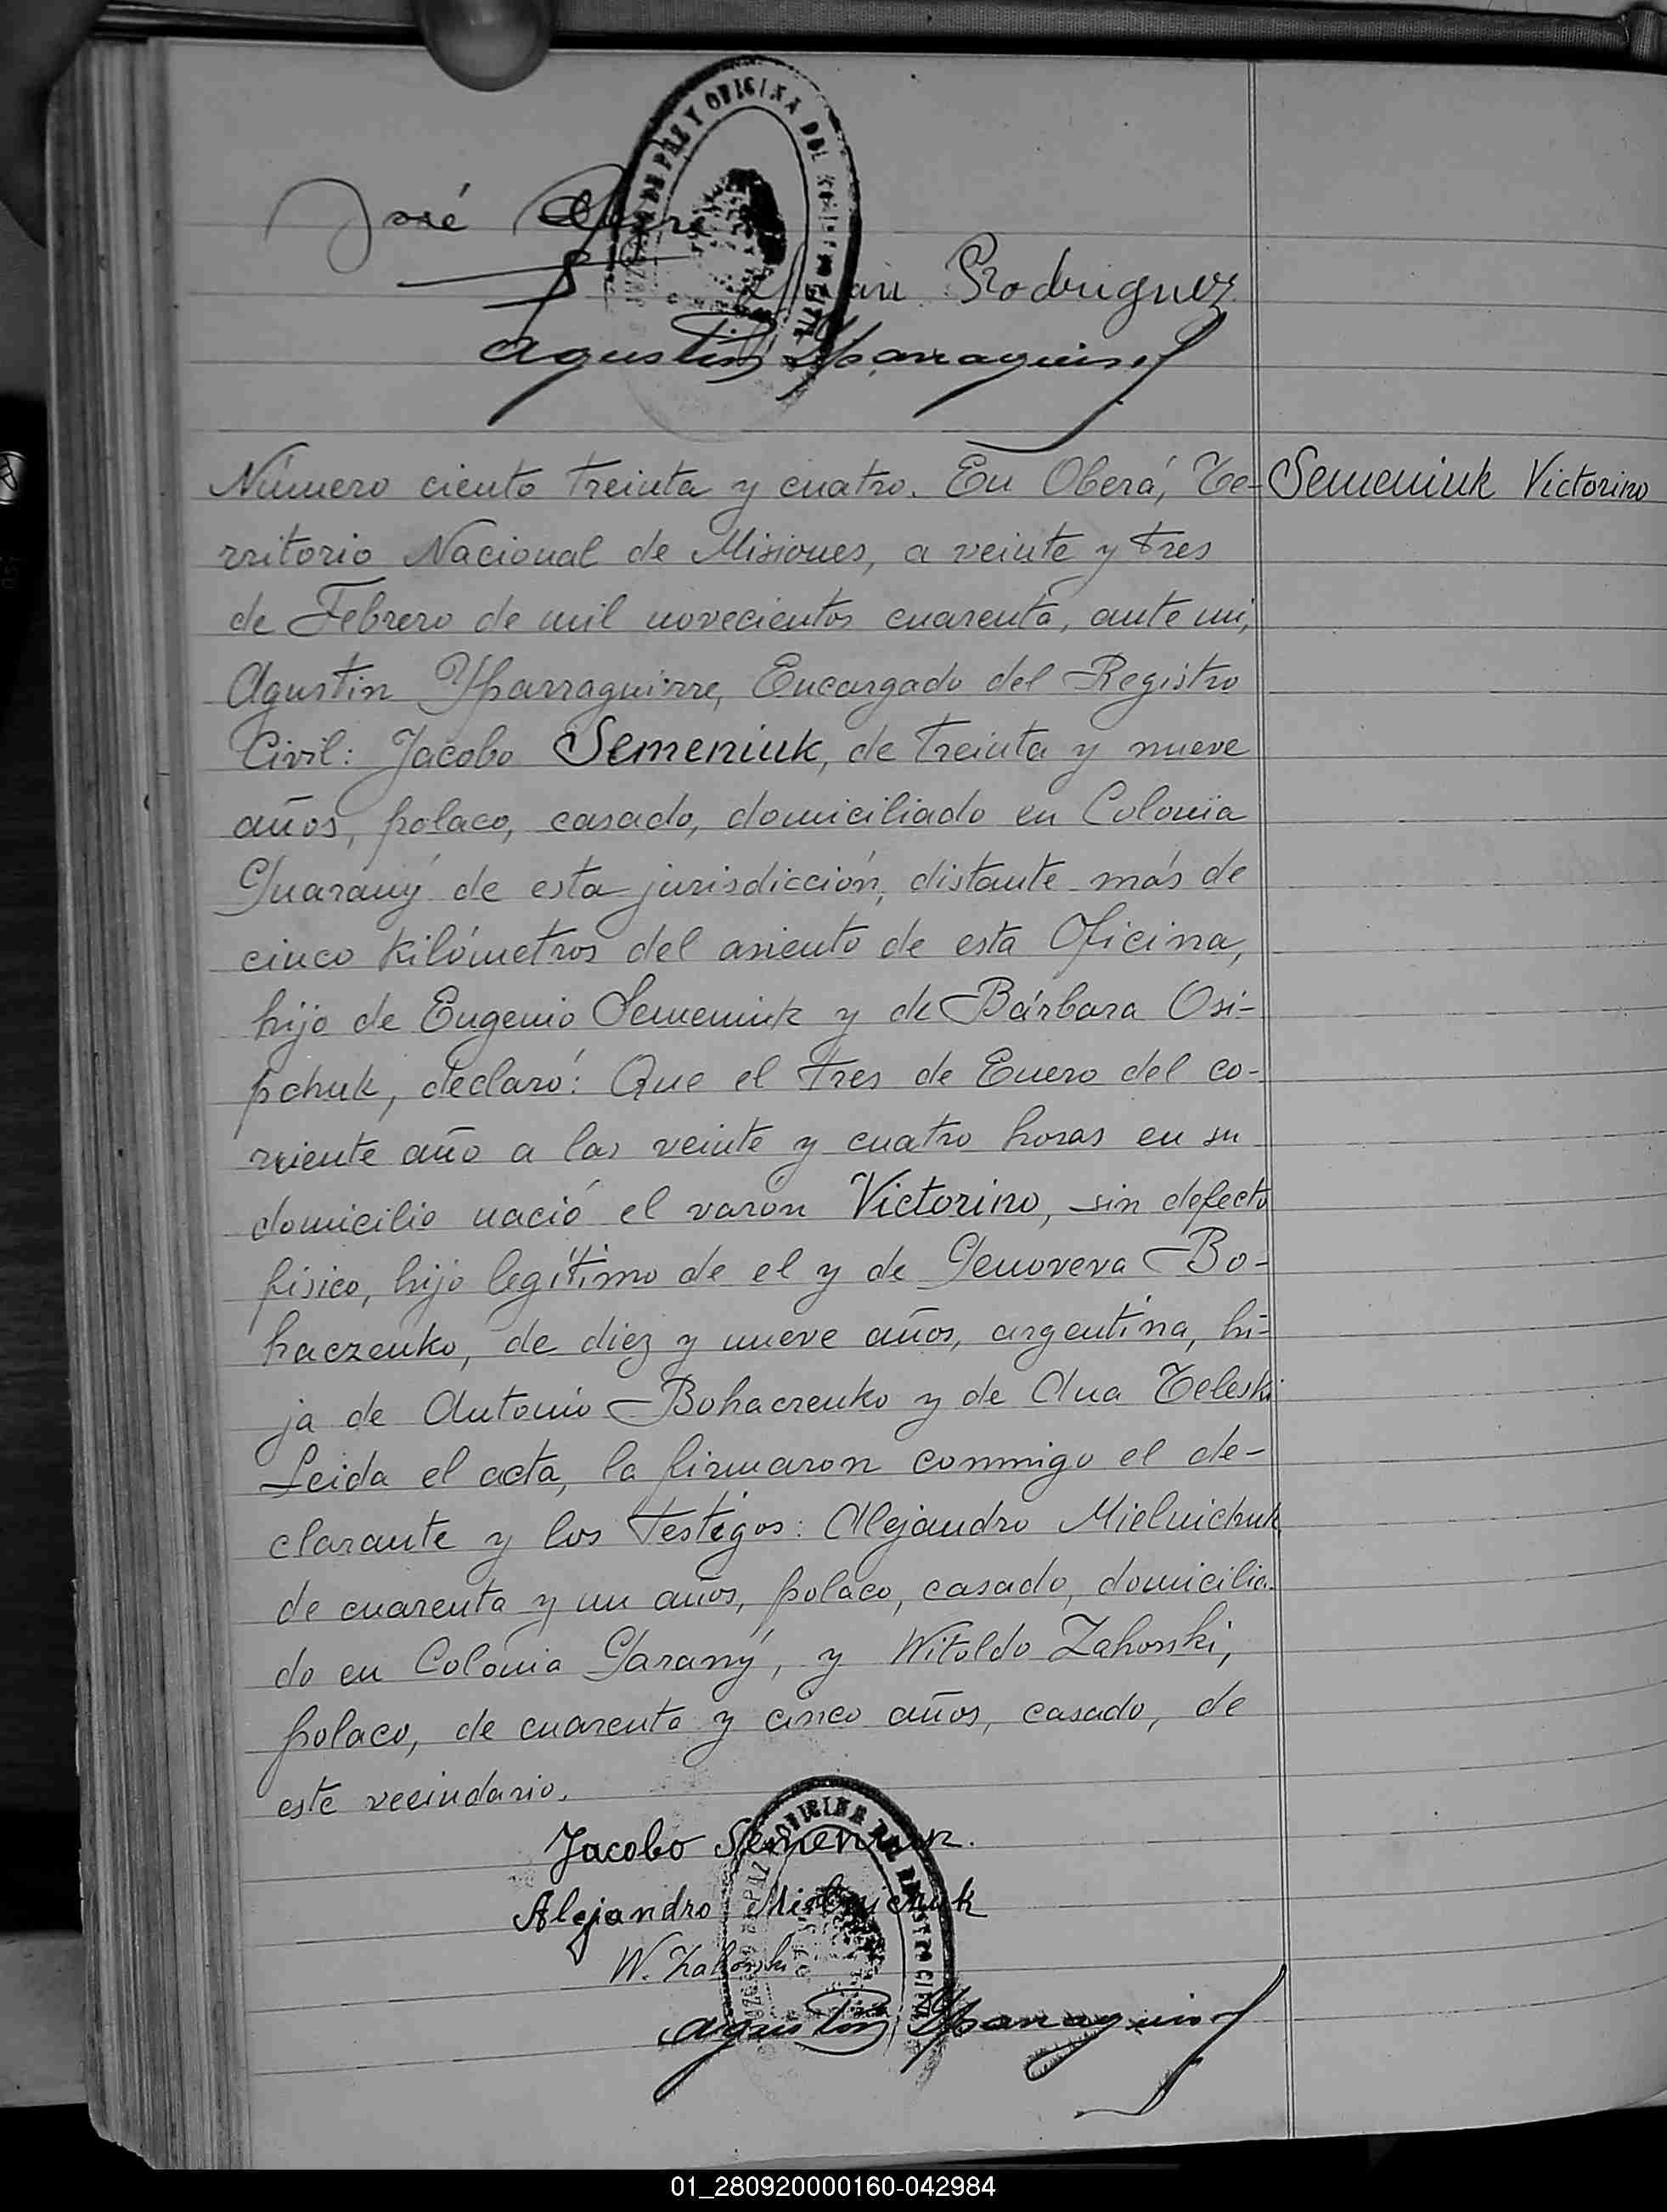 JUZGADO DE PAZ Y OFICINA DEL REGISTRO CIVIL
José
Juan Rodriguez
Agustin Yparraguirre
Número ciento treinta y cuatro. En Oberá, Te-
Semeniuk Victorino
rritorio Nacional de Misiones, a veinte y tres
de Febrero de mil novecientos cuarenta, ante mi,
Agustin Yparraguirre, Encargado del Registro
Civil: Jacobo Semeniuk, de treinta y nueve
años, polaco, casado, domiciliado en Colonia
Guarany de esta jurisdicción, distante más de
cinco kilómetros del asiento de esta Oficina,
hijo de Eugenio Semeniuk y de Bárbara Osi-
pchuk, declaró: Que el tres de Enero del co-
rriente año a las veinte y cuatro horas en su
domicilio nació el varón Victorino, sin defecto
físico, hijo legítimo de el y de Genoveva Bo-
haczenko, de diez y nueve años, argentina, hi-
ja de Antonio Bohaczenko y de Ana Teleski
Leida el acta, la firmaron conmigo el de-
clarante y los testigos: Alejandro Mielnichuk
de cuarenta y un años, polaco, casado, domicilia-
do en Colonia Garany, y Witoldo Zahorski,
polaco, de cuarenta y cinco años, casado, de
este vecindario.
Jacobo Semeniuk.
Alejandro Mielnichuk
W. Zahorski
JUZGADO DE PAZ Y OFICINA DEL REGISTRO CIVIL
Agustin Yparraguirre
01_280920000160-042984